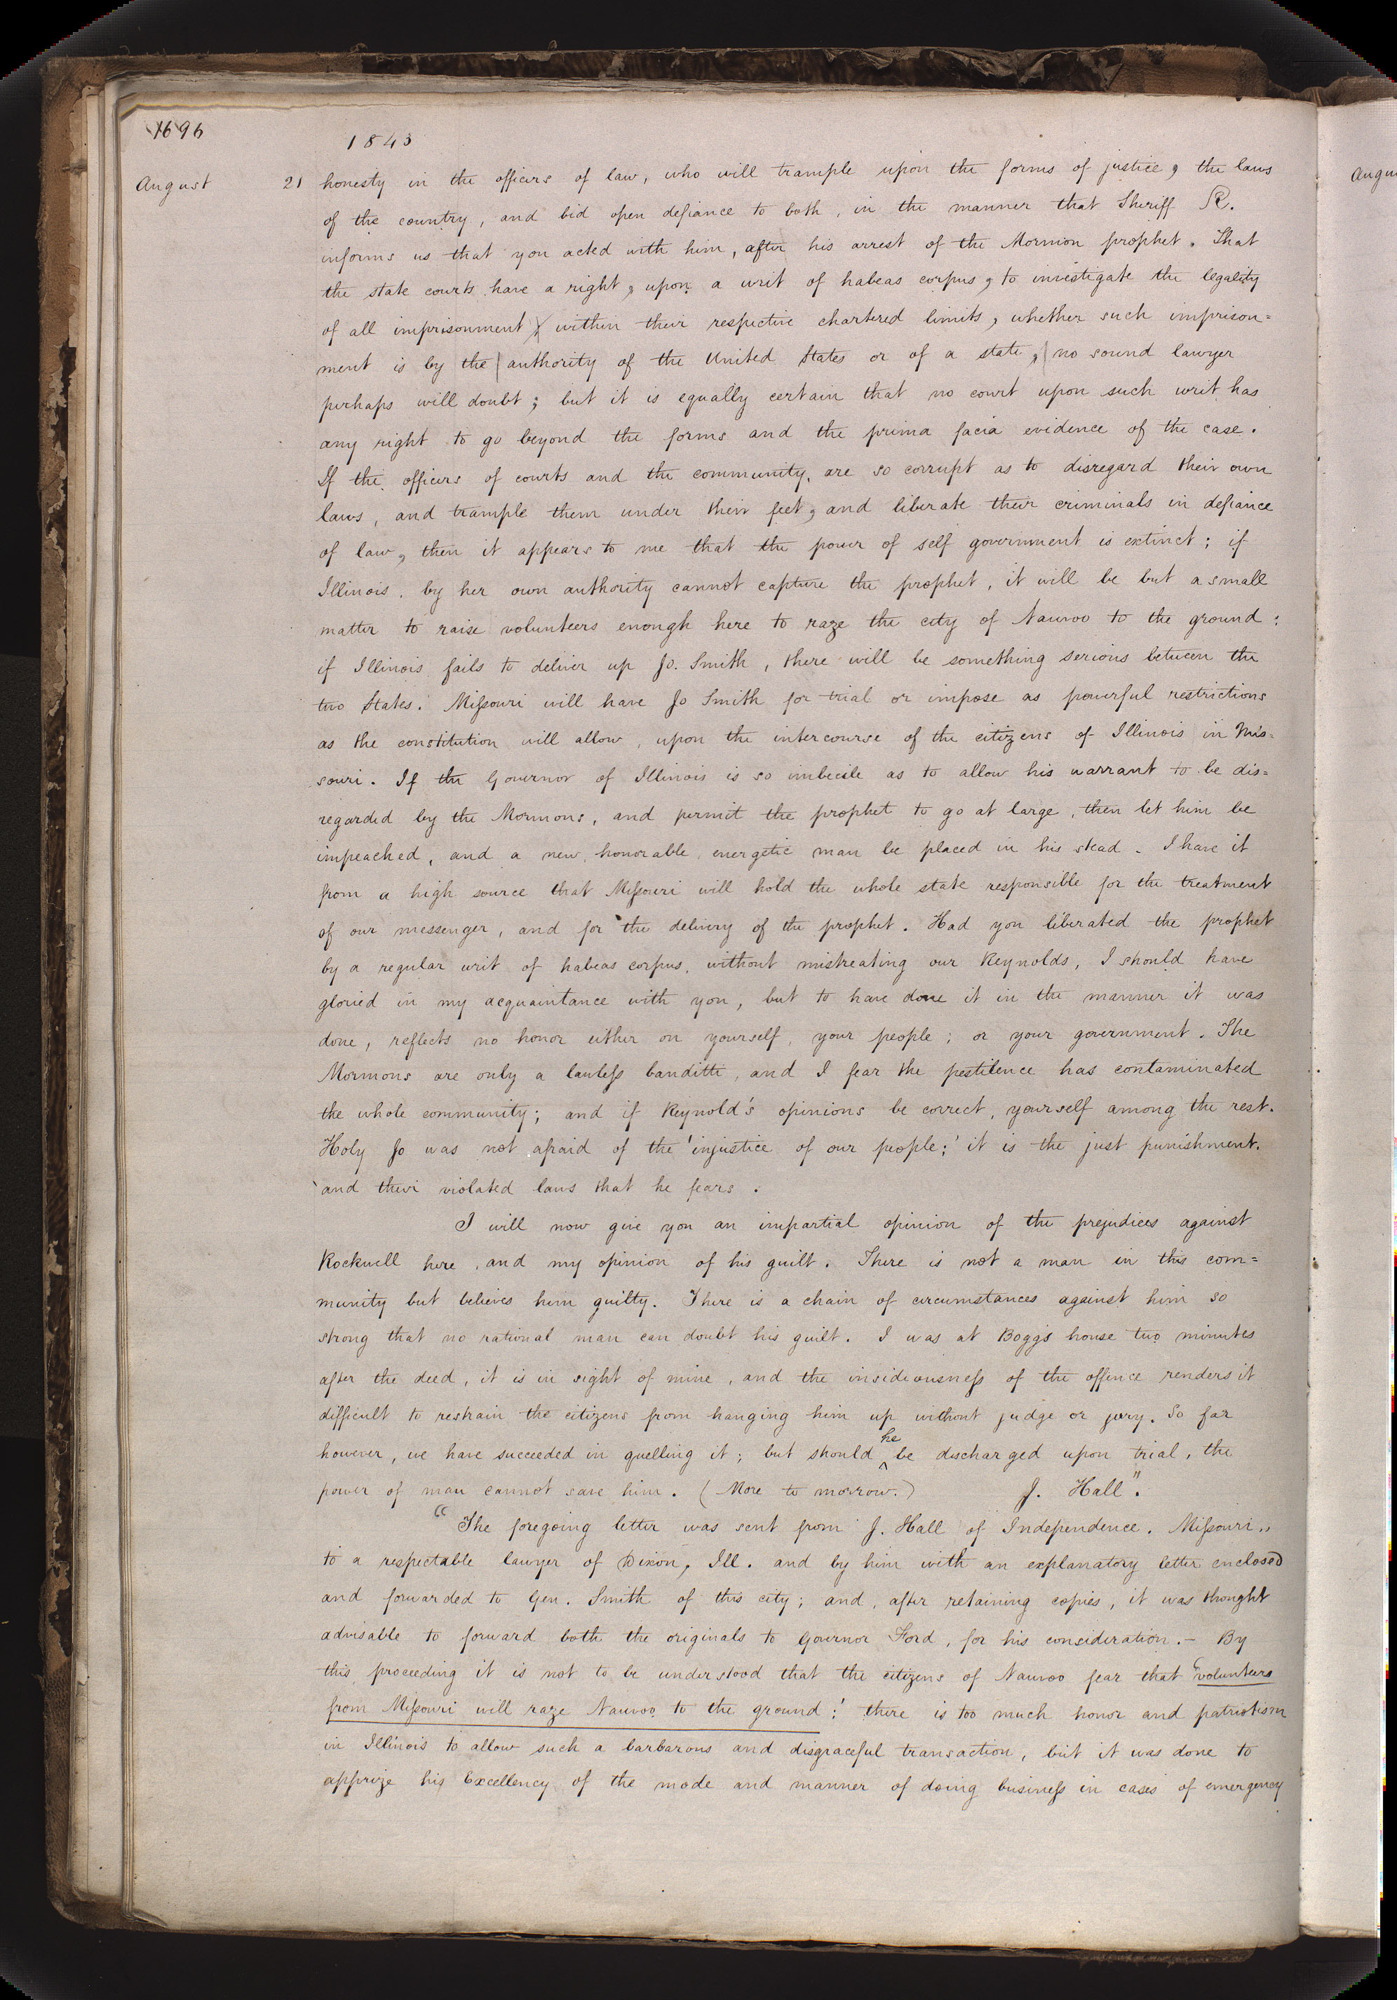 1696
1843
August 21 honesty in the officers of law, who will trample upon the forms of justice, the laws
of the country, and bid open defiance to both, in the manner that Sheriff R.
informs us that you acted with him, after his arrest of the Mormon prophet. That
the state courts have a right, upon a writ of habeas corpus, to investigate the legality
of all imprisonment within their respective chartered limits, whether such imprison=
ment is by the authority of the United States or of a state, no sound lawyer
perhaps will doubt; but it is equally certain that no court upon such writ has
any right to go beyond the forms and the prima facia evidence of the case.
If the officers of courts and the community, are so corrupt as to disregard their own
laws, and trample them under their feet, and liberate their criminals in defiance
of law, then it appears to me that the power of self government is extinct; if
Illinois. by her own authority cannot capture the prophet, it will be but a small
matter to raise volunteers enough here to raze the city of Nauvoo to the ground:
if Illinois fails to deliver up Jo. Smith, there will be something serious between the
two States. Missouri will have Jo Smith for trial or impose as powerful restrictions
as the constitution will allow, upon the intercourse of the citizens of Illinois in Mis=
souri. If the Governor of Illinois is so imbecile as to allow his warrant to be dis=
regarded by the Mormons, and permit the prophet to go at large, then let him be
impeached, and a new, honorable, energetic man be placed in his stead. I have it
from a high source that Missouri will hold the whole state responsible for the treatment
of our messenger, and for the delivery of the prophet. Had you liberated the prophet
by a regular writ of habeas corpus, without mistreating our Reynolds, I should have
gloried in my acquaintance with you, but to have done it in the manner it was
done, reflects no honor either on yourself, your people; or your government. The
Mormons are only a lawless banditti, and I fear the pestilence has contaminated
the whole community; and if Reynold's opinions be correct, yourself among the rest.
Holy Jo was not afraid of the 'injustice of our people;' it is the just punishment.
and their violated laws that he fears.
I will now give you an impartial opinion of the prejudices against
Rockwell here, and my opinion of his guilt. There is not a man in this com=
munity but believes him guilty. There is a chain of circumstances against him so
strong that no rational man can doubt his guilt. I was at Boggs house two minutes
after the deed, it is in sight of mine, and the insidiousness of the offence renders it
difficult to restrain the citizens from hanging him up without judge or jury. So far
however, we have succeeded in quelling it; but should ^he be discharged upon trial, the
power of man cannot save him. (More to morrow.) J. Hall."
"The foregoing letter was sent from J. Hall of Independence. Missouri,,
to a respectable lawyer of Dixon, Ill. and by him with an explanatory letter enclosed
and forwarded to Gen. Smith of this city; and, after retaining copies, it was thought
advisable to forward both the originals to Governor Ford, for his consideration.— By
this proceeding it is not to be understood that the citizens of Nauvoo fear that 'volunteers
from Missouri will raze Nauvoo to the ground:' there is too much honor and patriotism
in Illinois to allow such a barbarous and disgraceful transaction, but it was done to
apprize his Excellency of the mode and manner of doing business in cases of emergency
Augu